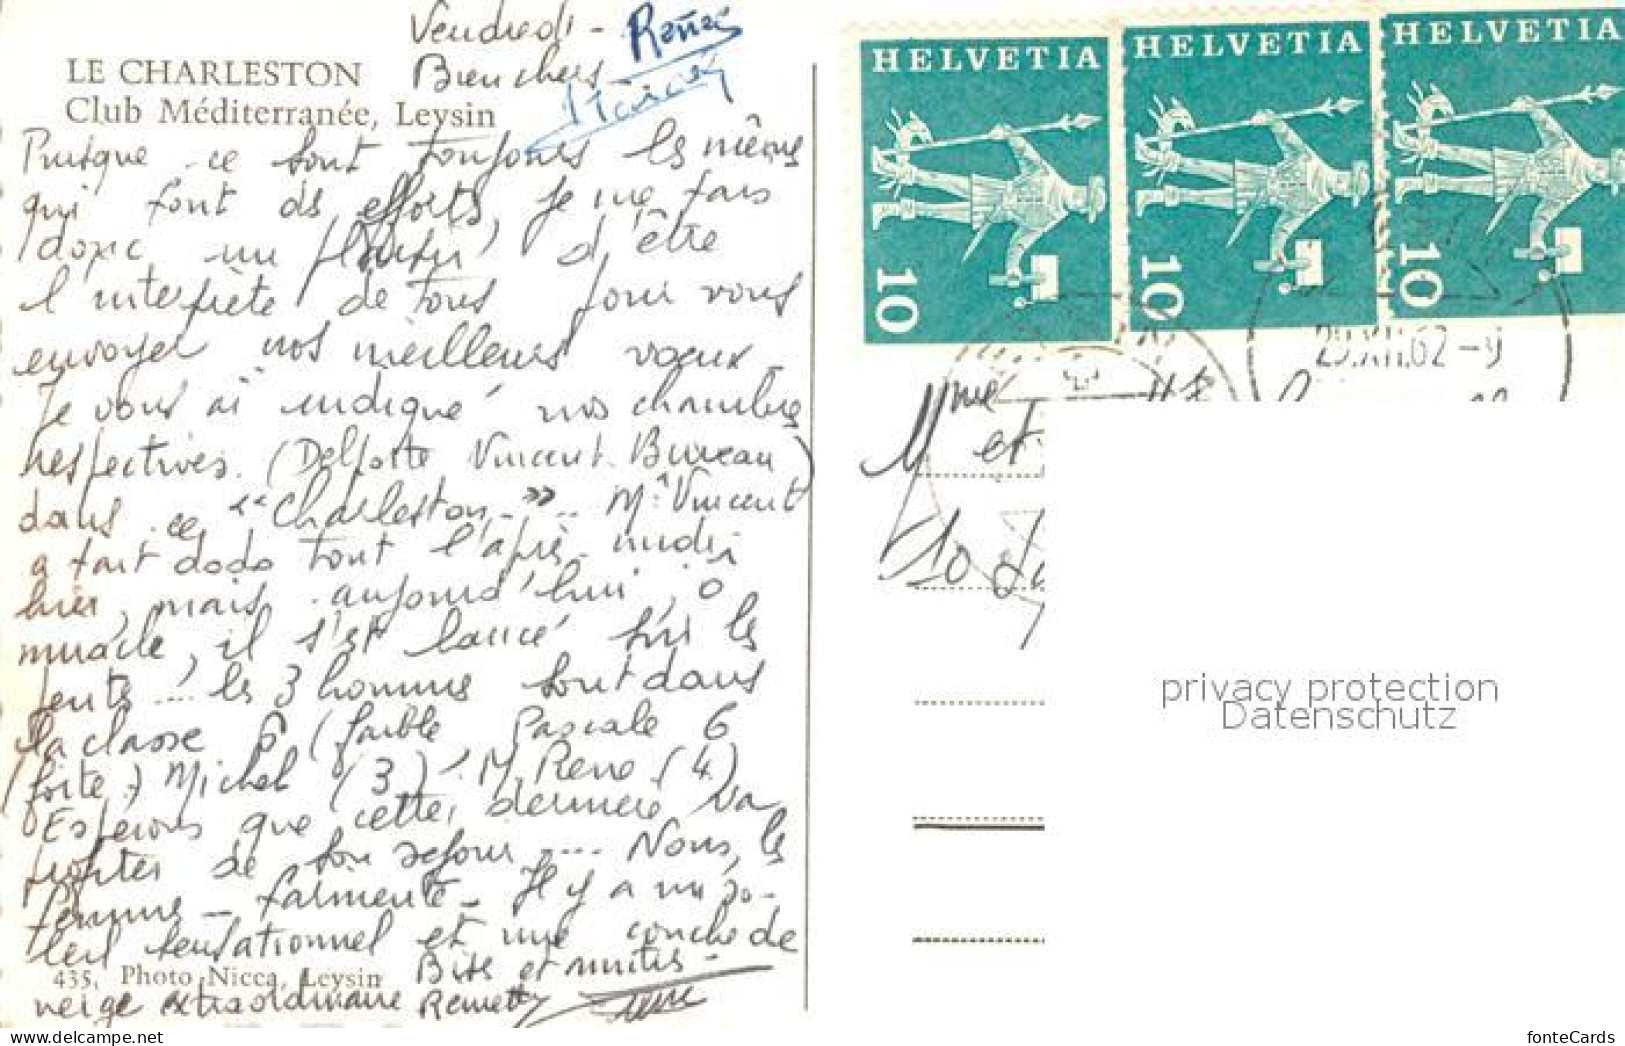 Vendredi -
Bien chers - Renée
LE CHARLESTON
Club Méditerranée, Leysin
Puisque ce sont toujours les mêmes
qui font des efforts, je me fais
donc un plaisir d'être
l'interprète de tous pour vous
envoyer nos meilleurs voeux -
Je vous ai indiqué nos chambres
respectives. (Delporte Vincent Bureau)
dans ce "Charleston -" .. Mr Vincent
a fait dodo tout l'après-midi
hier, mais aujourd'hui, o
miracle, il s'est lancé sur les
pentes ... les 3 hommes sont dans
la classe 6 (faible Pascale 6
(forte) Michel (3) M. Rene (4)
Esperons que cette dernière va
profiter de son sejour .... Nous, les
femmes - farniente - Il y a un so-
leil sensationnel et une couche de
435, Photo Nicca, Leysin Bises et amitiés -
neige extraordinaire
HELVETIA
10
HELVETIA
10
HELVETIA
10
29.XII.62-9
Mme
et
10
privacy protection
Datenschutz
fonteCards